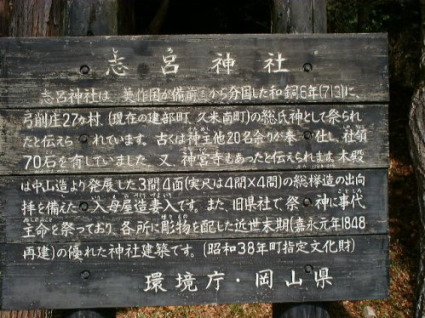 志呂神社
志呂神社は、美作国が備前国から分国した和銅6年(713)に、
弓削庄27カ村、(現在の建部町、久米南町)の総氏神として祭られ
たと伝えら れています。古くは神主他20名余りが奉 仕し、社領
70石を有していました。又、神宮寺もあったと伝えられます。本殿
は中山造より発展した3間4面(実尺は4間×4間)の総欅造の出向
拝を備えた 入母屋造妻入です。また、旧県社で祭 神に事代
主命を祭っており、各所に彫物を配した近世末期(嘉永元年1848
再建)の優れた神社建築です。(昭和38年町指定文化財)
環境庁・岡山県